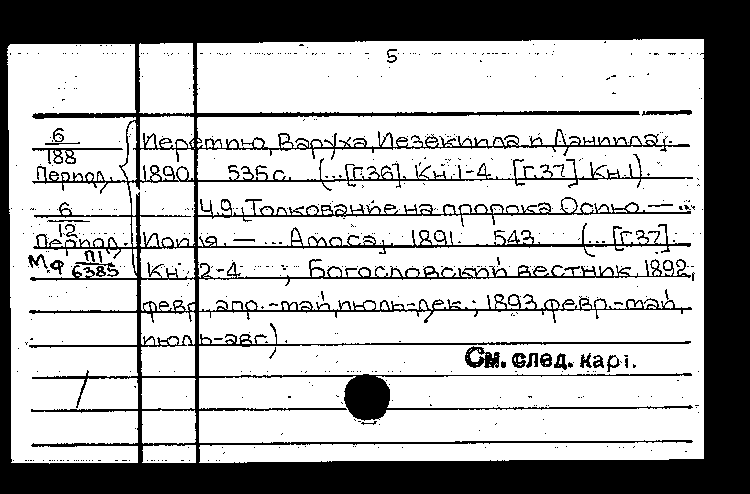 5
6
188
Период.
Иеремию, Варуха, Иезекииля и Даниила].
1890. 535 с. (...[Г.36]. Кн. 1-4. [Г.37]. Кн. 1).
6
12
Период.
Ч.9. [Толкование на пророка Осию. — ...
Иоиля. — ... Амоса]. 1891. 543. (... [Г.37].
Мф П1
6385
Кн. 2-4. ; Богословский вестник, 1892,
февр., апр.-май, июль-дек.; 1893, февр.-май,
июль-авг.).
См. след. карт.
/